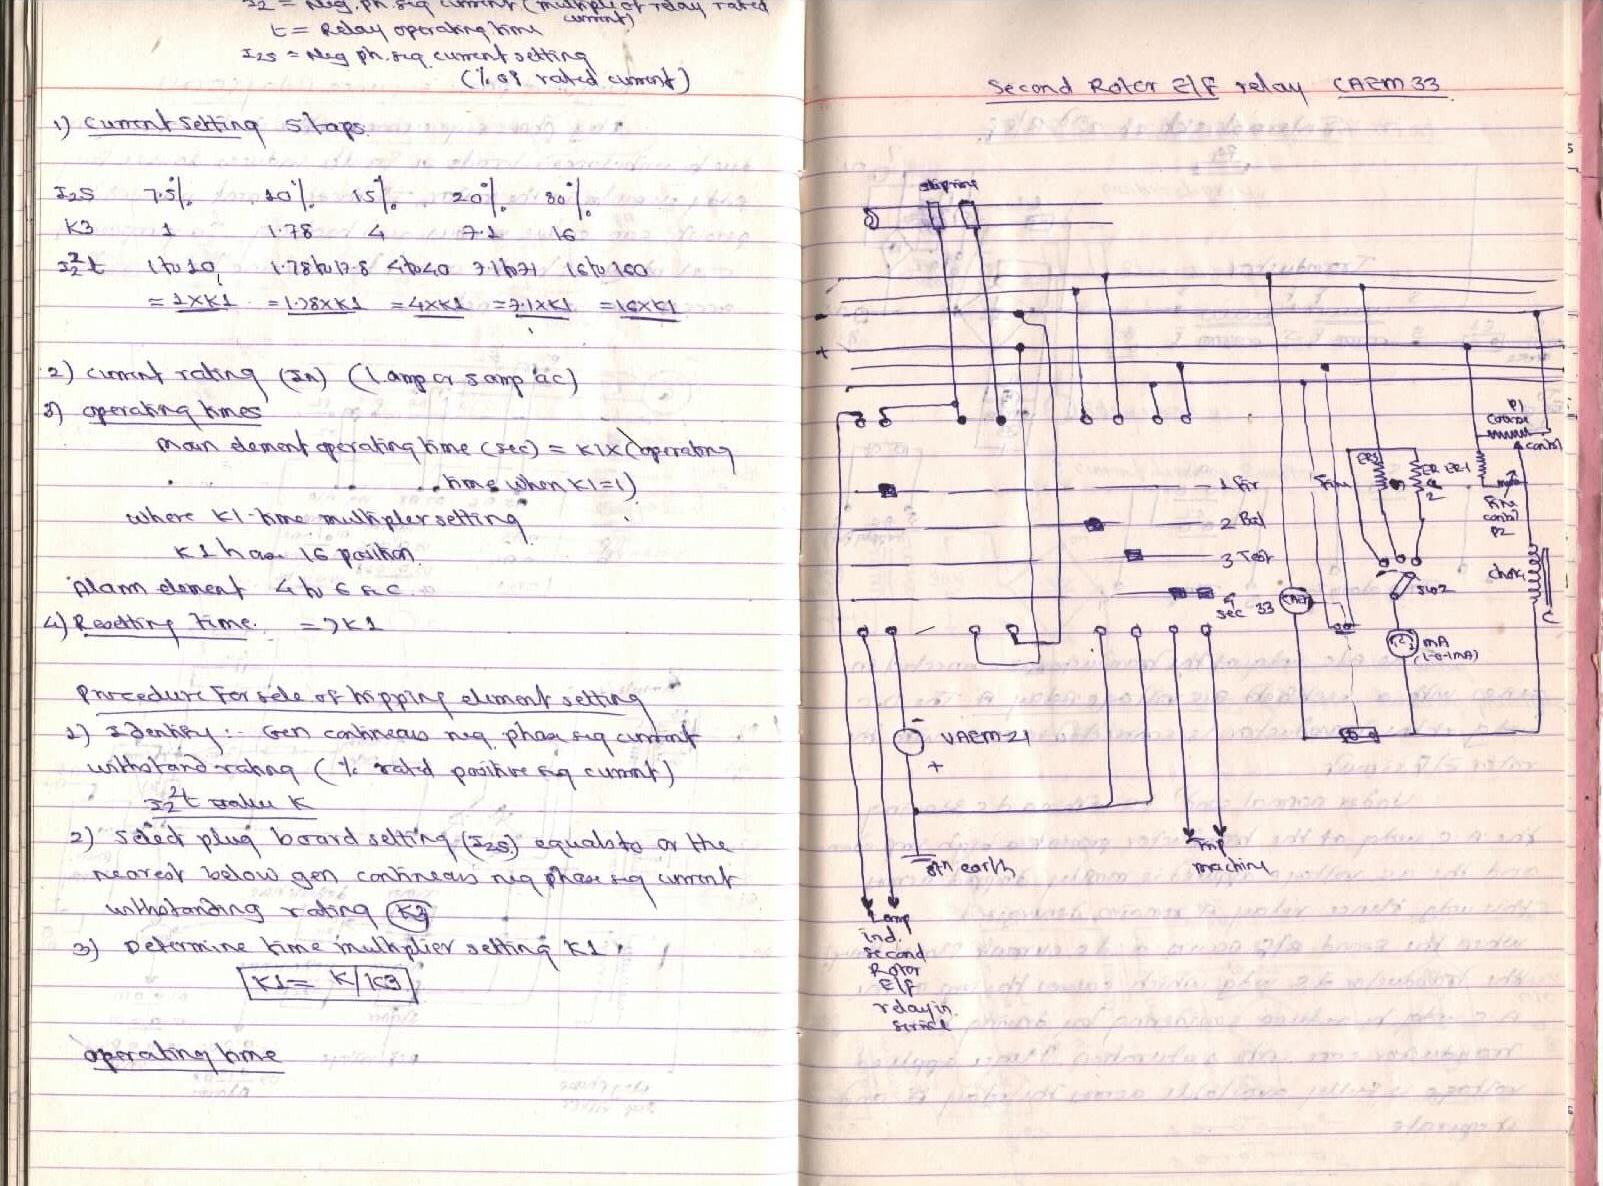 I2 = Neg. ph. seq current (multiple of relay rated current)
t = Relay operating time
I2s = Neg ph. seq current setting
(% of rated current)
1) Current setting Staps
I2S 7.5% 10% 15% 20% 30%
K3 1 1.78 4 7.1 16
I2²t 1 to 10, 1.78 to 17.8 4 to 40 7.1 to 71 16 to 160
= 1xK1 = 1.78xK1 = 4xK1 = 7.1xK1 = 16xK1
2) Current rating (In) (1 amp or 5 amp ac)
3) operating times
Main element operating time (sec) = K1 x (operating
time when K1=1)
where K1 - time multipler setting
K1 has 16 position
Alarm element 4 to 6 sec.
4) Resetting Time. = 7K1
Procedure for sele of tripping element setting
1) Identify :- Gen contineous neg phase seq current
withstand rating (% rated positive seq current)
I2²t value K
2) Select plug board setting (I2s) equals to or the
nearest below gen contineous neg phase seq current
withstanding rating K3
3) Determine time multiplier setting K1
K1 = K/K3
operating time
Second Rotor E/F relay CAEM 33
slipring
-
+
P1
Coarse
control
ER3
ER
2
ER1
Fine
control
P2
1 Fir
2 Bal
3 Test
4
sec 33
SW2
choke
C
mA
(1-0-1mA)
-
VAEM-21
+
Stn earth
Trip
machine
Lamp
ind.
second
Rotor
E/F
relay in
service